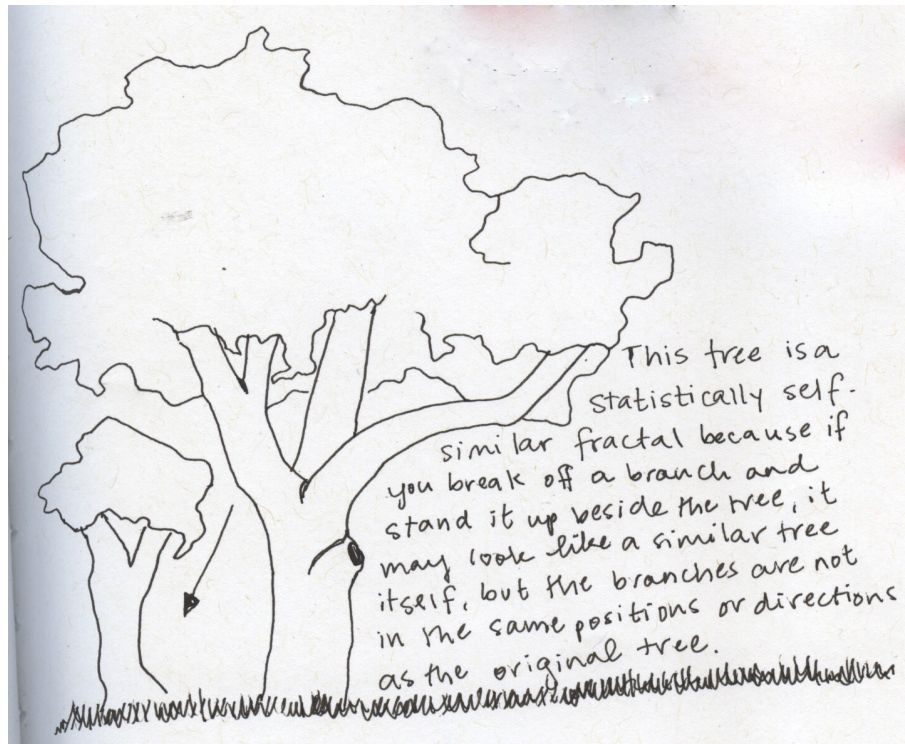 This tree is a
statistically self-
similar fractal because if
you break off a branch and
stand it up beside the tree, it
may look like a similar tree
itself, but the branches are not
in the same positions or directions
as the original tree.